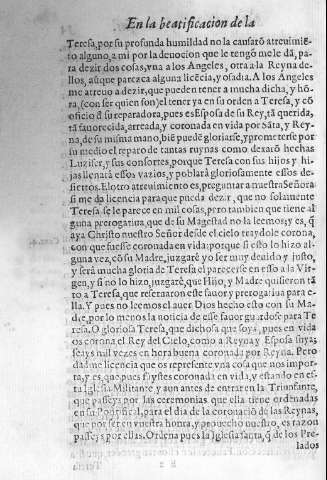 En la beatificacion de la
Teresa, por su profunda humildad no la causarõ atreuimiẽ
to alguno, a mi por la deuocion que le tengo me le dà, pa
ra dezir dos cosas, vna a los Angeles, otra a la Reyna de-
llos, aũque parezca alguna licẽcia, y osadia. A los Angeles
me atreuo a dezir, que pueden tener a mucha dicha, y hõ
ra, (con ser quien son) el tener ya en su orden a Teresa, y cõ
oficio d̃ su reparadora, pues es Esposa de su Rey, tã querida,
tã fauorecida, arreada, y coronada en vida por Sãta, y Rey-
na, de su misma mano, biẽ puede gloriarse, y prometerse por
su medio el reparo de tantas ruynas como dexarõ hechas
Luzifer, y sus consortes, porque Teresa con sus hijos y hi-
jas llenarà essos vazios, y poblarà gloriosamente essos de-
siertos. El otro atreuimiento es, preguntar a nuestra Señora
si me da licencia para que pueda dezir, que no solamente
Teresa se le parece en mil cosas, pero tambien que tiene al
guna prerogatiua, que de su Magestad no la leemos; y es, q̃
aya Christo nuestro Señor desde el cielo traydole corona,
con que fuesse coronada en vida: porque si esto lo hizo al
guna vez, cõ su Madre, juzgarè yo ser muy deuido y justo,
y serà mucha gloria de Teresa el parecerse en esso a la Vir-
gen, y si no lo hizo, juzgarè, que Hijo, y Madre quisieron tã
to a Teresa, que reseruaron este fauor y prerogatiua para e-
lla. Y pues no leemos el auer Dios hecho esto con su Ma-
dre, por lo menos la noticia de esse fauor guardose para Te
resa. O gloriosa Teresa, que dichosa que soys, pues en vida
os corona el Rey del Cielo, como a Reyna y Esposa suya;
seays mil vezes en hora buena coronada por Reyna. Pero
dadme licencia que os represente vna cosa que nos impor-
ta, y es, que pues fuystes coronada en vida, y estando en es-
ta Iglesia Militante y aun antes de entrar en la Triunfante,
que passeys por las ceremonias que ella tiene ordenadas
en su Pontifical, para el dia de la coronaciõ de las Reynas,
que por ser en vuestra honra, y prouecho nuestro, es razon
passeys por ellas. Ordena pues la Iglesia santa, q̃ de los Pre-
lados